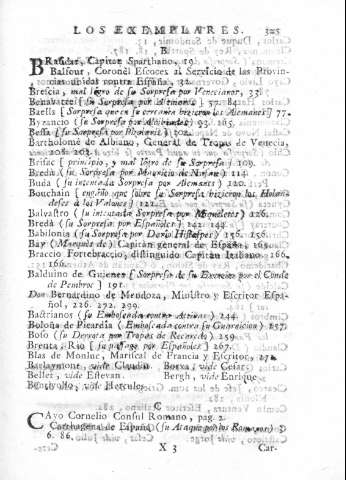 LOS EXEMPLARES. 325
B
BRasidas, Capitan Sparthano, 19.
Balfour, Coronèl Escoces al Servicio de las Provin-
cias unidas contra España, 32.
Brescia, mal logro de su Sorpresa por Venecianos, 37.
Benavarre [su Sorpresa por Alemanes] 57. 84.
Baells [Sorpresa que en su cercania hizieron los Alemanes] 77.
Byzancio (su Sorpresa por 93. 163.
Bessa [su Sorpresa por 102.
Bartholomè de Albiano, General de Tropas de Venecia,
208. 263.
Brisac [principio, y mal logro de su Sorpresa] 109.
Bredà [su Sorpresa por Mauricio de Nasau] 114.
Buda [su intentada Sorpresa por Alemanes] 120.
Bouchain [engaño que sobre su Sorpresa hizieron los Holan-
deses à los Valones] 122.
Balvastro [su intentada Sorpresa por Miqueletes] 126.
Bredà [su Sorpresa por Españoles] 142. 144.
Babilonia [su Sorpresa por Dario Histaspes] 156. 256.
Bay (Marquès de) Capitan general de España, 165.
Braccio Fortebraccio, distinguido Capitan Italiano, 166.
166.
Balduino de Guienes [Sorpresa de su Exercito por el Conde
de Pembroc] 191.
Don Bernardino de Mendoza, Ministro y Escritor Espa-
ñol, 226. 292. 299.
Bastrianos (su Emboscada contra ) 244.
Boloña de Picardia (Emboscada contra su Guarnicion) 257.
Boso (su Derrota por Tropas de Recaredo) 259.
Brenta, Rio [su passage por Españoles] 267.
Blas de Monluc, Mariscal de Francia y Escritor,
Barlaymone, vide Claudio. Borxa, vide Cesar.
Bellet, vide Estevan. Bergh, vide Enrique.
Bentivollo, vide Hercules.
C
CAyo Cornelio Consul Romano, pag. 2.
Carthagena de España (su Ataque por los Romanos) 3.
6. 86.
X 3 Car-